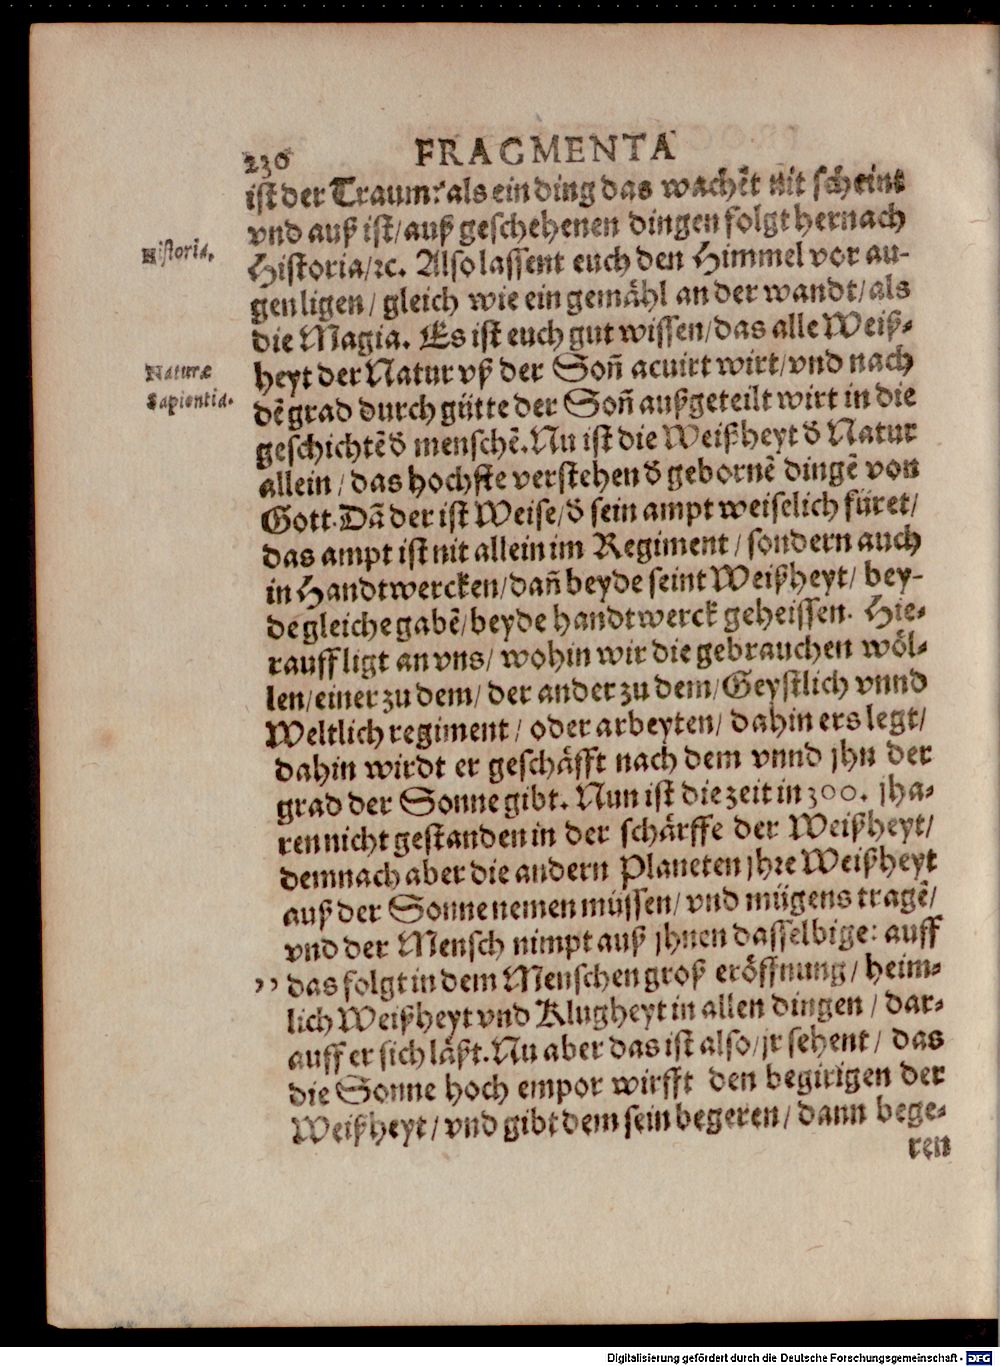 230 FRAGMENTA
ist der Traum: als ein ding das wachēt nit scheint
vnd auß ist/ auß geschehenen dingen folgt hernach
Historia.
Historia/ꝛc. Also lassent euch den Himmel vor au-
gen ligen/ gleich wie ein gemähl an der wandt/ als
die Magia. Es ist euch gut wissen/ das alle Weiß-
Naturæ
heyt der Natur vß der Soñ acuirt wirt/ vnd nach
Sapientia.
dē grad durch gütte der Soñ außgeteilt wirt in die
geschichtē đ menschē. Nu ist die Weißheyt đ Natur
allein/ das hochste verstehen đ gebornē dingē von
Gott. Dā der ist Weise/ đ sein ampt weiselich füret/
das ampt ist nit allein im Regiment/ sondern auch
in Handtwercken/ dañ beyde seint Weißheyt/ bey-
de gleiche gabē/ beyde handtwerck geheissen. Hie-
rauff ligt an vns/ wohin wir die gebrauchen wöl-
len/ einer zu dem/ der ander zu dem/ Geystlich vnnd
Weltlich regiment/ oder arbeyten/ dahin ers legt/
dahin wirdt er geschäfft nach dem vnnd jhn der
grad der Sonne gibt. Nun ist die zeit in 300. jha-
ren nicht gestanden in der schärffe der Weißheyt/
demnach aber die andern Planeten jhre Weißheyt
auß der Sonne nemen müssen/ vnd mügens tragē/
vnd der Mensch nimpt auß jhnen dasselbige: auff
,, das folgt in dem Menschen groß eröffnung/ heim-
lich Weißheyt vnd Klugheyt in allen dingen/ dar-
auff er sich läßt. Nu aber das ist also/ jr sehent/ das
die Sonne hoch empor wirfft den begirigen der
Weißheyt/ vnd gibt dem sein begeren/ dann bege-
ren
Digitalisierung gefördert durch die Deutsche Forschungsgemeinschaft - DFG